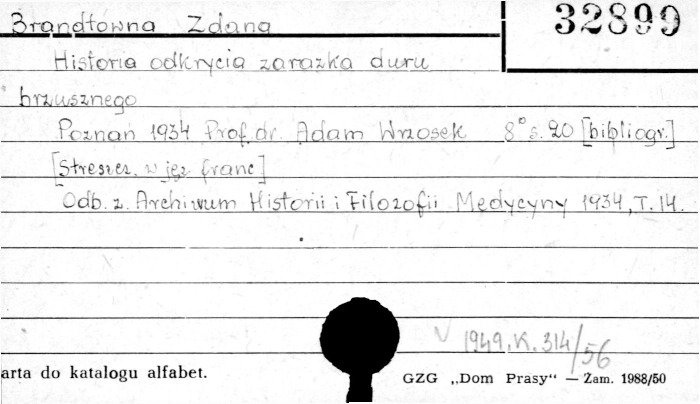 Brandtówna Zdana
32899
Historia odkrycia zarazka duru
brzusznego
Poznań 1934 Prof. dr. Adam Wrzosek 8° s. 20 [bibliogr.]
[Streszcz. w jęz. franc]
Odb. z. Archiwum Historii i Filozofii Medycyny 1934, T. 14.
V 1949. K. 314/56
arta do katalogu alfabet.
GZG „Dom Prasy“ — Zam. 1988/50